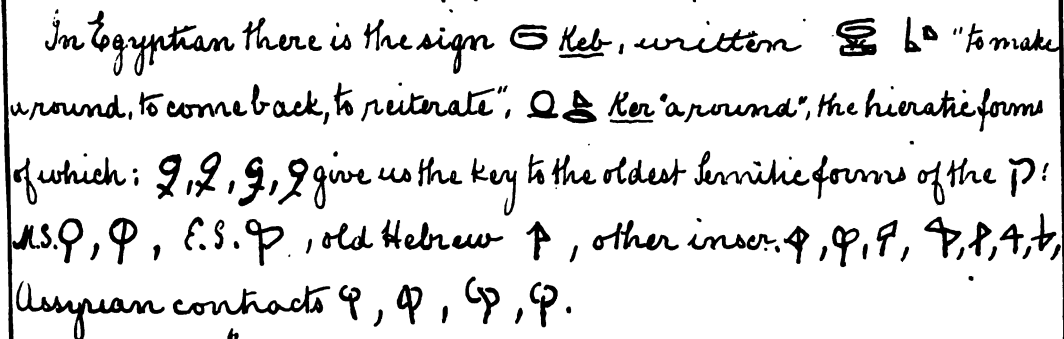 In Egyptian there is the sign Keb, written "to make
a round, to come back, to reiterate", Ker "a round", the hieratic forms
of which: give us the key to the oldest Semitic forms of the ק:
M.S. , , E.S. , old Hebrew , other inscr. , , , , , , ,
Assyrian contracts , , , .